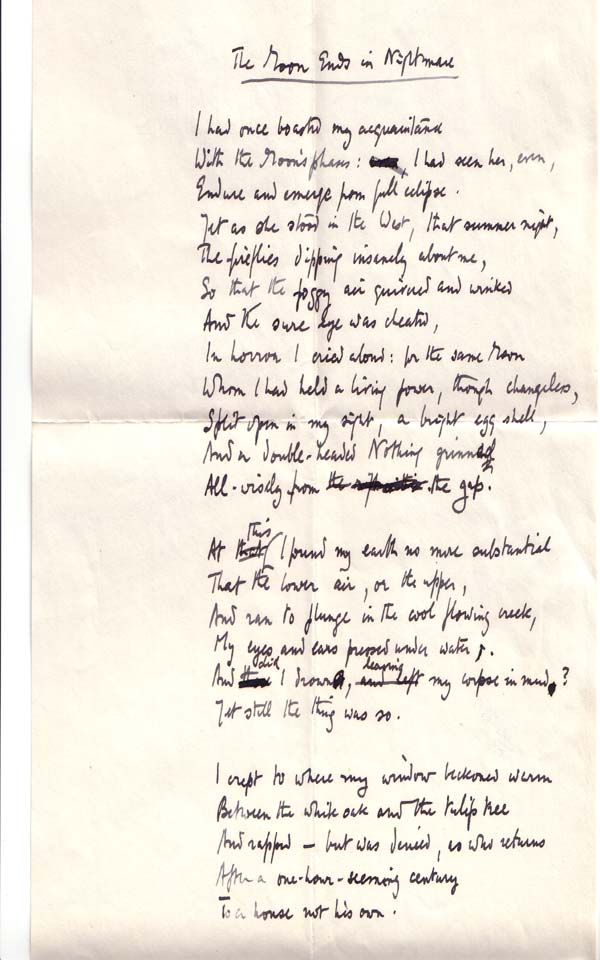 The Moon Ends in Nightmare
I had once boasted my acquaintance
With the Moon's phases: I had seen her, even,
Endure and emerge from full eclipse.
Yet as she stood in the West, that summer night,
The fireflies dipping insanely about me,
So that the foggy air quivered and winked
And the sure eye was cheated,
In horror I cried aloud: for the same Moon
Whom I had held a living power, though changeless,
Split open in my sight, a bright egg shell,
And a double-headed Nothing grinned
All-wisely from the the gap.
this
At that I found my earth no more substantial
That the lower air, or the upper,
And ran to plunge in the cool flowing creek,
My eyes and ears pressed under water.
did leaving
And I drown, and left my corpse in mud?
Yet still the thing was so.
I crept to where my window beckoned warm
Between the white oak and the tulip tree
And rapped – but was denied, as who returns
After a one-hour-seeming century
To a house not his own.